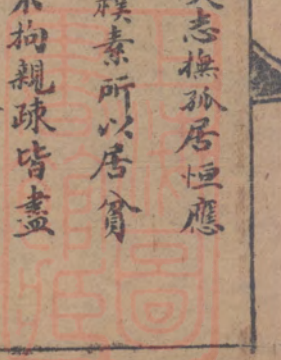 志撫孤居恒應
樸素所以居貧
拘親疎皆盡